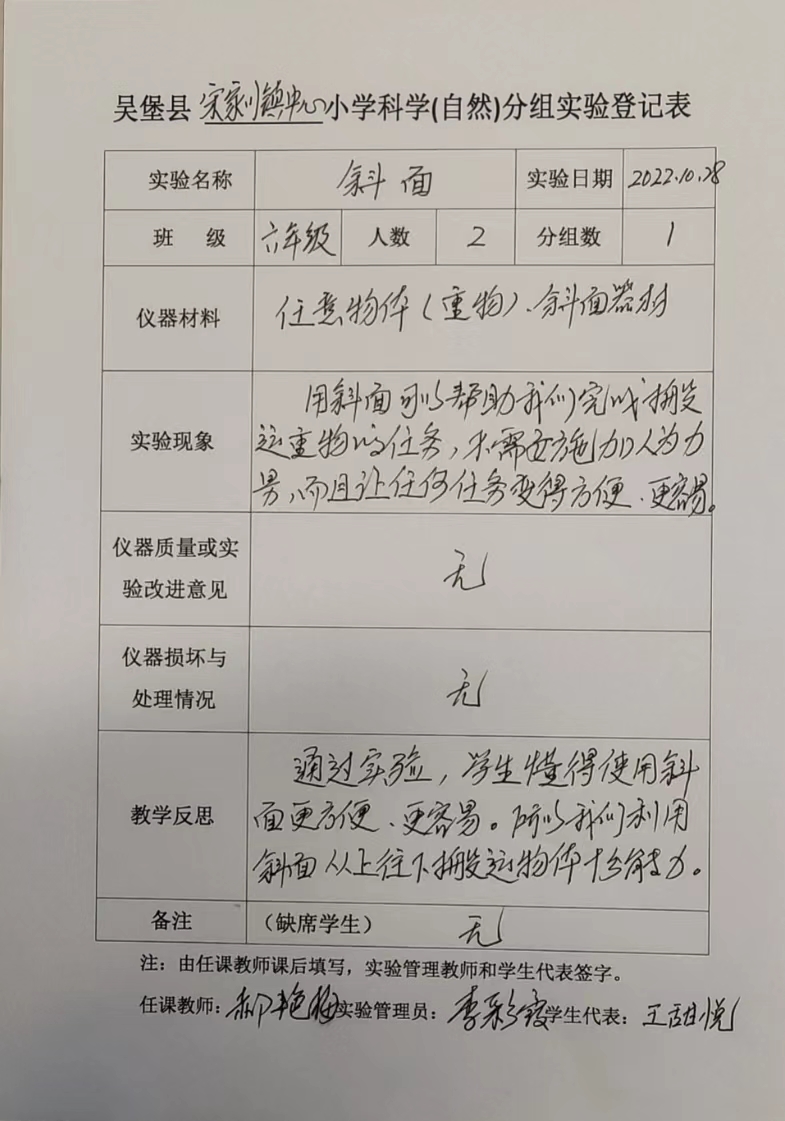 吴堡县 宋家川镇中心小学科学(自然)分组实验登记表
实验名称 斜面 实验日期 2022.10.28
班 级 六年级 人数 2 分组数 1
仪器材料 任意物体(重物)、斜面器材
实验现象
用斜面可以帮助我们完成搬
运重物的任务,不需要施加人为力
另,而且让任何任务变得方便、更容易。
仪器质量或实
验改进意见
无
仪器损坏与
处理情况
无
教学反思
通过实验,学生懂得使用斜
面更方便、更容易。所以我们利用
斜面从上往下搬运物体十分省力。
备注 (缺席学生) 无
注:由任课教师课后填写,实验管理教师和学生代表签字。
任课教师:郝艳梅 实验管理员:李彩霞 学生代表:王甜悦